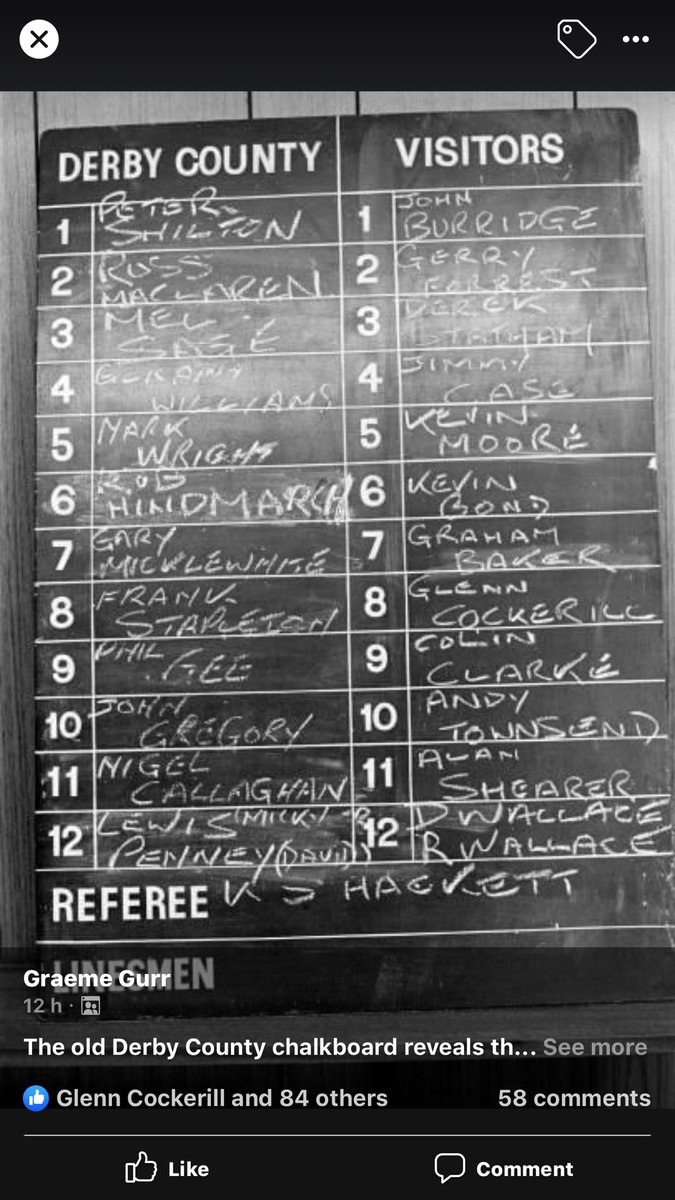 DERBY COUNTY VISITORS
1 PETER SHILTON 1 JOHN BURRIDGE
2 ROSS MACLAREN 2 GERRY FORREST
3 MEL SAGE 3 DEREK STATHAM
4 GERAINT WILLIAMS 4 JIMMY CASE
5 MARK WRIGHT 5 KEVIN MOORE
6 ROB HINDMARCH 6 KEVIN BOND
7 GARY MICKLEWHITE 7 GRAHAM BAKER
8 FRANK STAPLETON 8 GLENN COCKERILL
9 PHIL GEE 9 COLIN CLARKE
10 JOHN GREGORY 10 ANDY TOWNSEND
11 NIGEL CALLAGHAN 11 ALAN SHEARER
12 LEWIS (MICKY) PENNEY (DAVID) 12 D WALLACE R WALLACE
REFEREE K S HACKETT
LINESMEN
Graeme Gurr
12 h ·
The old Derby County chalkboard reveals th... See more
Glenn Cockerill and 84 others 58 comments
Like Comment